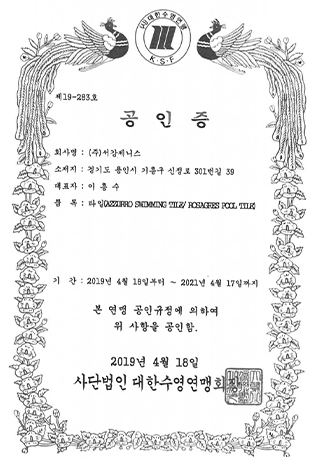 (사)대한수영연맹
K·S·F
제19-283호
공 인 증
회사명 : (주)서강제니스
소재지 : 경기도 용인시 기흥구 신정로 301번길 39
대표자 : 이 흥 수
품 목 : 타일(AZZURRO SWIMMING TILE/ ROSAGRES POOL TILE)
기 간 : 2019년 4월 18일부터 ~ 2021년 4월 17일까지
본 연맹 공인규정에 의하여
위 사항을 공인함.
2019년 4월 18일
사단법인 대한수영연맹회장